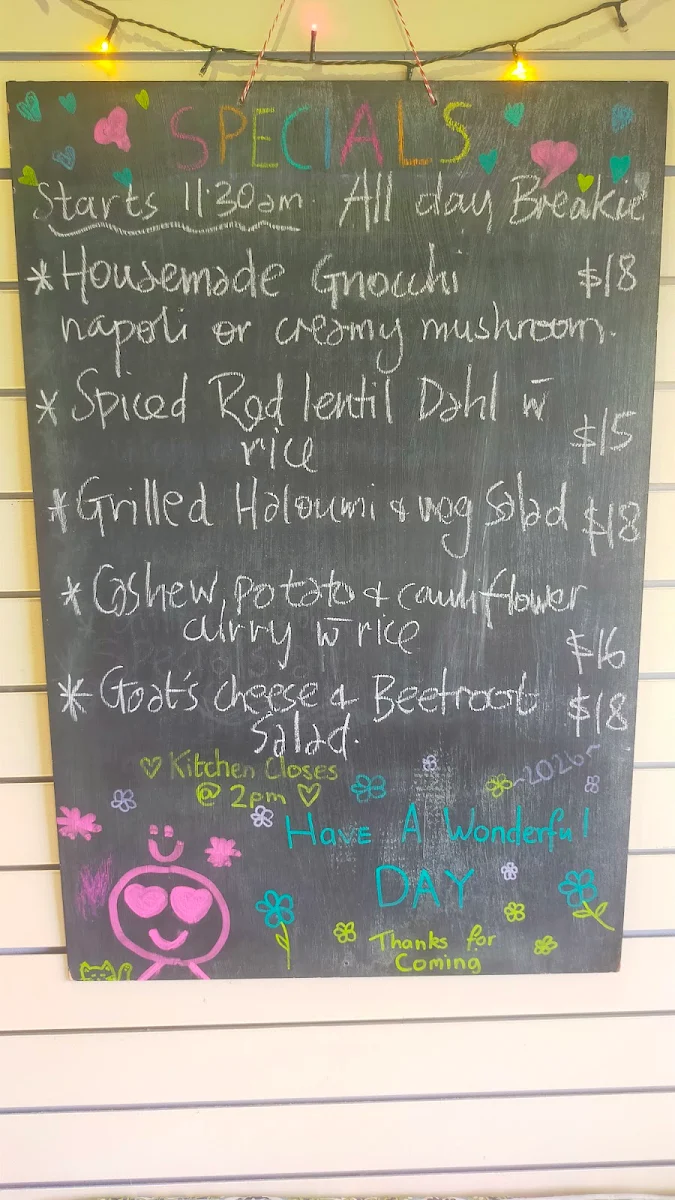 SPECIALS
Starts 11.30am All day Breakie
* Housemade Gnocchi $18
napoli or creamy mushroom.
* Spiced Red lentil Dahl w̄
rice $15
* Grilled Haloumi & veg Salad $18
* Cashew, potato & cauliflower
curry w̄ rice $16
* Goat's cheese & Beetroot $18
Salad.
♡ Kitchen Closes
@ 2pm ♡
~2026~
Have A Wonderful
DAY
Thanks for
Coming